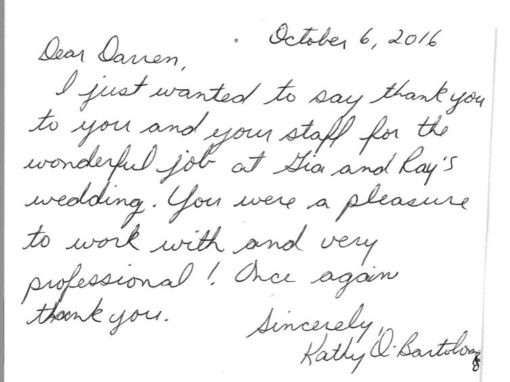 October 6, 2016
Dear Darren,
I just wanted to say thank you
to you and your staff for the
wonderful job at Gia and Ray's
wedding. You were a pleasure
to work with and very
professional! Once again
thank you.
Sincerely,
Kathy